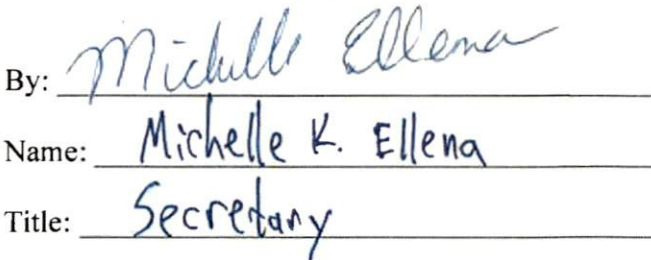 By: Michelle Ellena
Name: Michelle K. Ellena
Title: Secretary